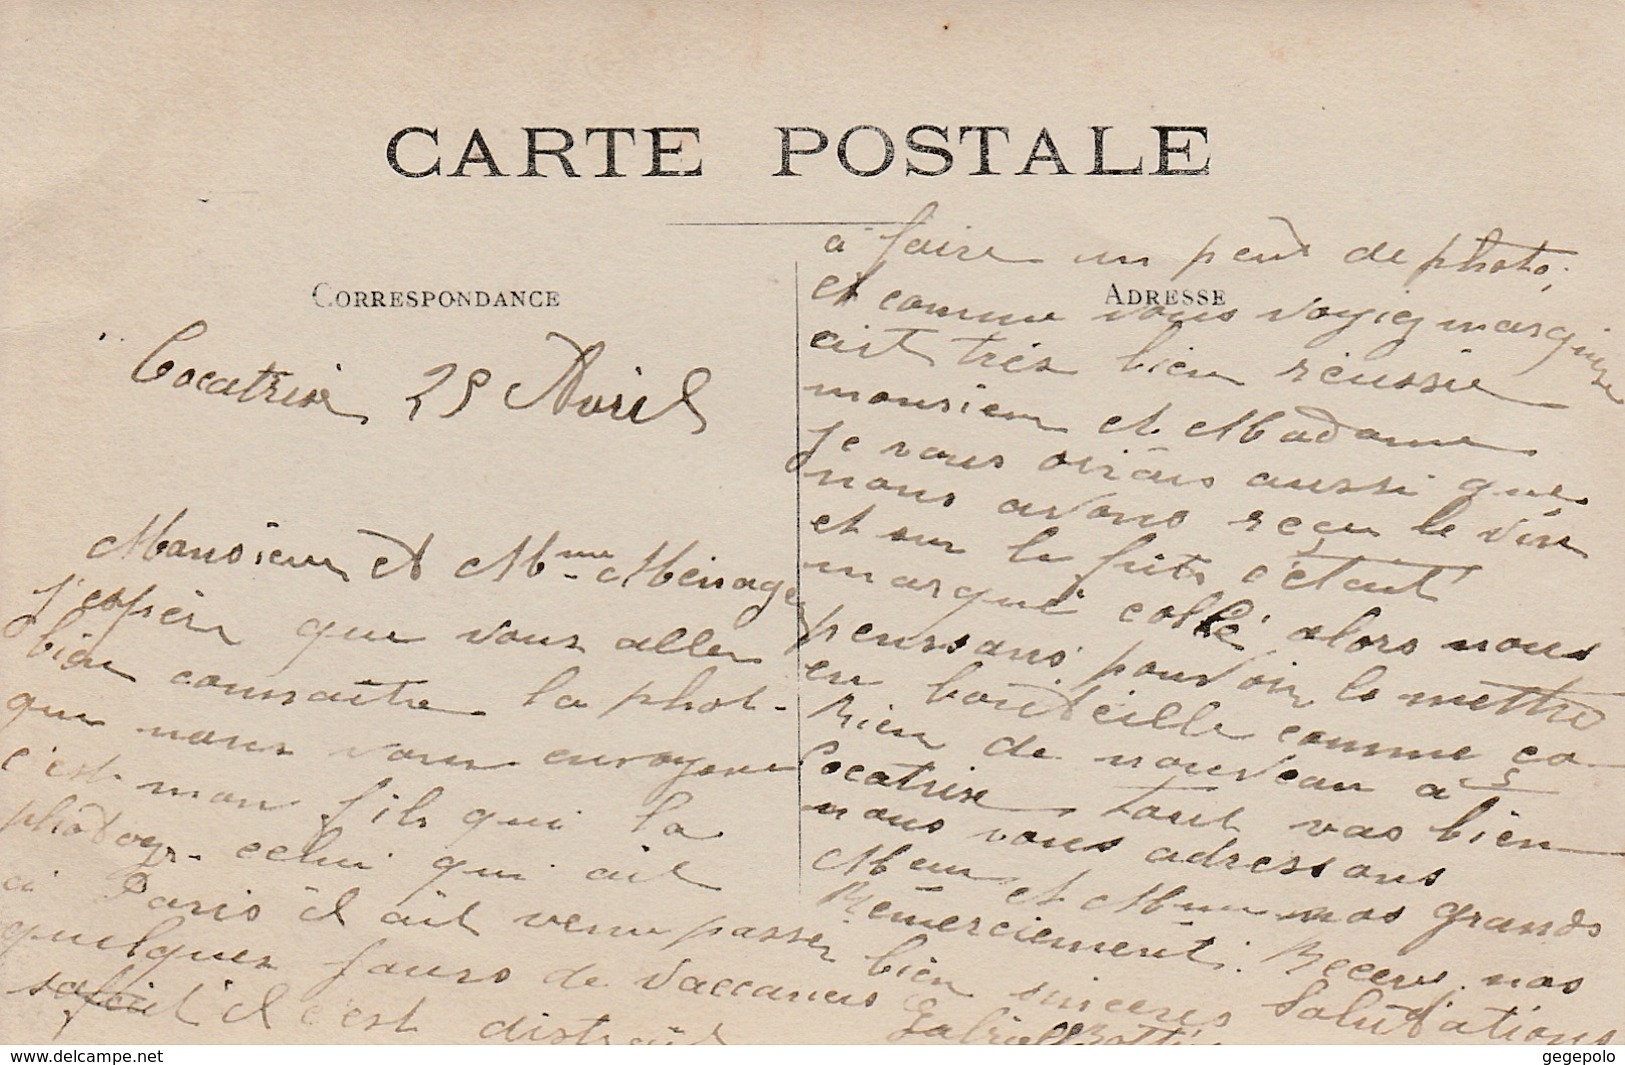 CARTE POSTALE
CORRESPONDANCE
Cocatrix 25 Avril
Monsieur et Mme Ménager
j'espère que vous aller
bien connaitre la phot-
que nous vous envoyons
c'est mon fils qui la
photogr. celui qui ait
à Paris il ait venu passer
quelques jours de vaccances
il c'est distrait
ADRESSE
a faire un peut de photo,
et comme vous voyiez marquise
ait très bien réussie
monsieur et Madame
je vous dirais aussi que
nous avons reçu le vin
et sur le futs c'était
marqué collé alors nous
penssons pouvoir le mettre
en bouteille comme ça
Rien de nouveau a
Cocatrix tout vas bien
nous vous adressons
Meur et Mme nos grands
Remerciement. Recevé nos
bien sinceres Salutations
Gabrielle
www.delcampe.net
gegepolo